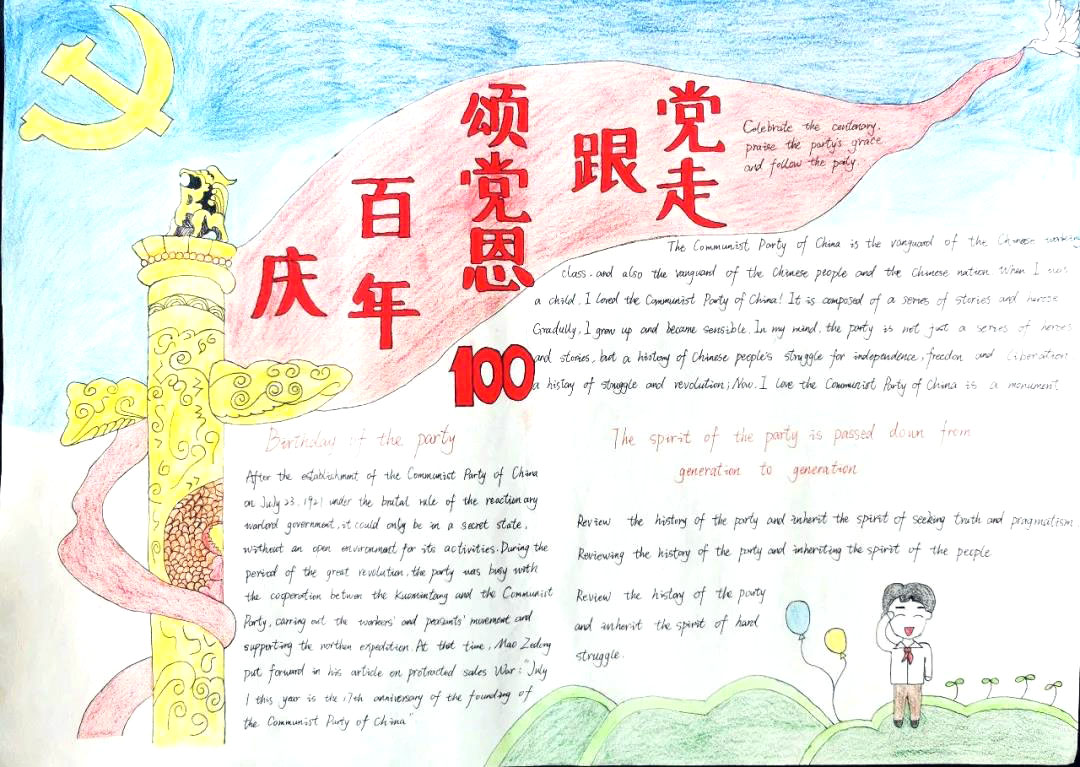 庆
百年
颂党恩
跟
党走
100
Celebrate the centenary,
praise the party's grace
and follow the party.
The Communist Party of China is the vanguard of the Chinese working
class, and also the vanguard of the Chinese people and the Chinese nation When I was
a child, I loved the Communist Party of China! It is composed of a series of stories and
Gradully, I grow up and became sensible. In my mind, the party is not just a series of heroes
and stories, but a history of Chinese people's struggle for independence, freedon and liberation
a histoy of struggle and revolution; Now, I love the Communist Party of China is a monument.
Birthday of the party
After the establishment of the Communist Party of China
on July 23, 1921 under the brutal rule of the reactionary
warlord government, it could only be in a secret state,
without an open environment for its activities. During the
period of the great revolution, the party was busy with
the cooperation between the Kuomintang and the Communist
Party, carring out the workers' and peasants' movement and
supporting the northen expedition. At that time, Mao Zedong
put forward in his article on protracted sales War: "July
1 this year is the 17th anniversary of the founding of
the Communist Party of China"
The spirit of the party is passed down from
generation to generation
Review the history of the party and inherit the spirit of seeking truth and pragmatism
Reviewing the history of the party and inheriting the spirit of the people
Review the history of the party
and inherit the spirit of hard
struggle.